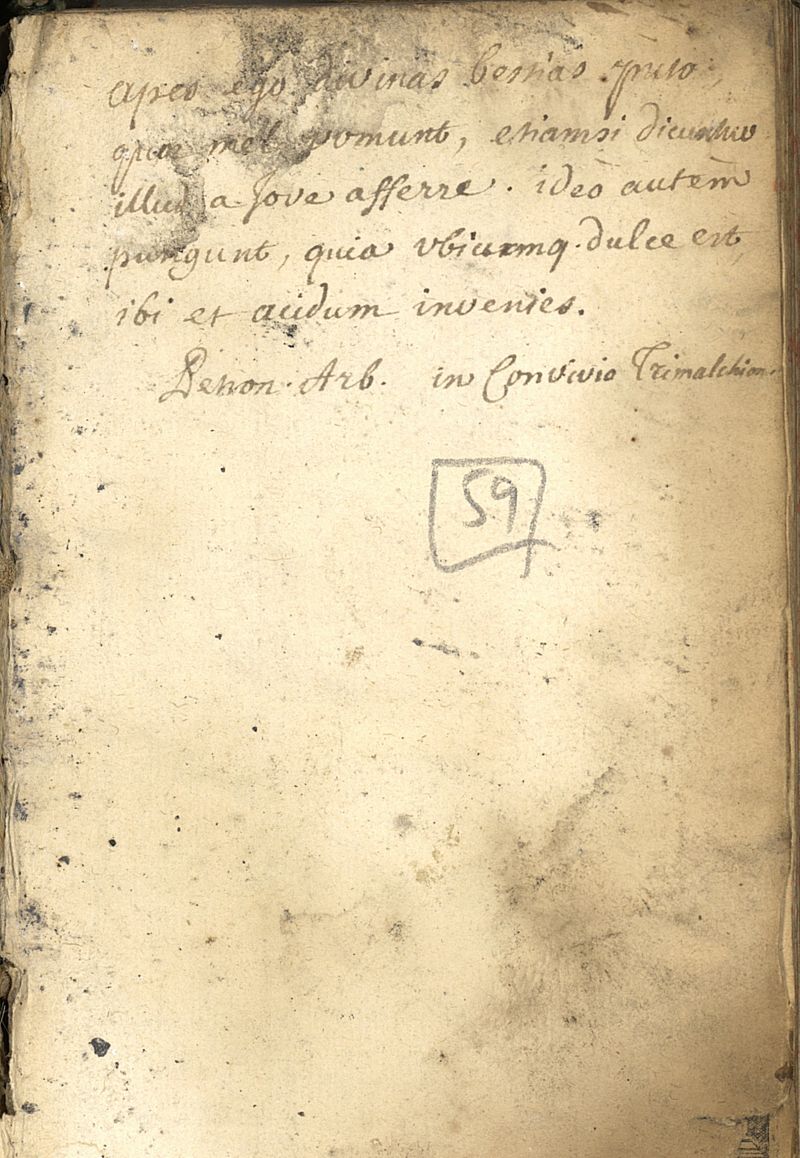 apes ego divinas bestias puto,
quae mel vomunt, etiamsi dicuntur
illud a Jove afferre. ideò autem
pungunt, quia vbicumq. dulce est,
ibi et acidum invenies.
Petron. Arb. in Convivio Trimalchion.
59